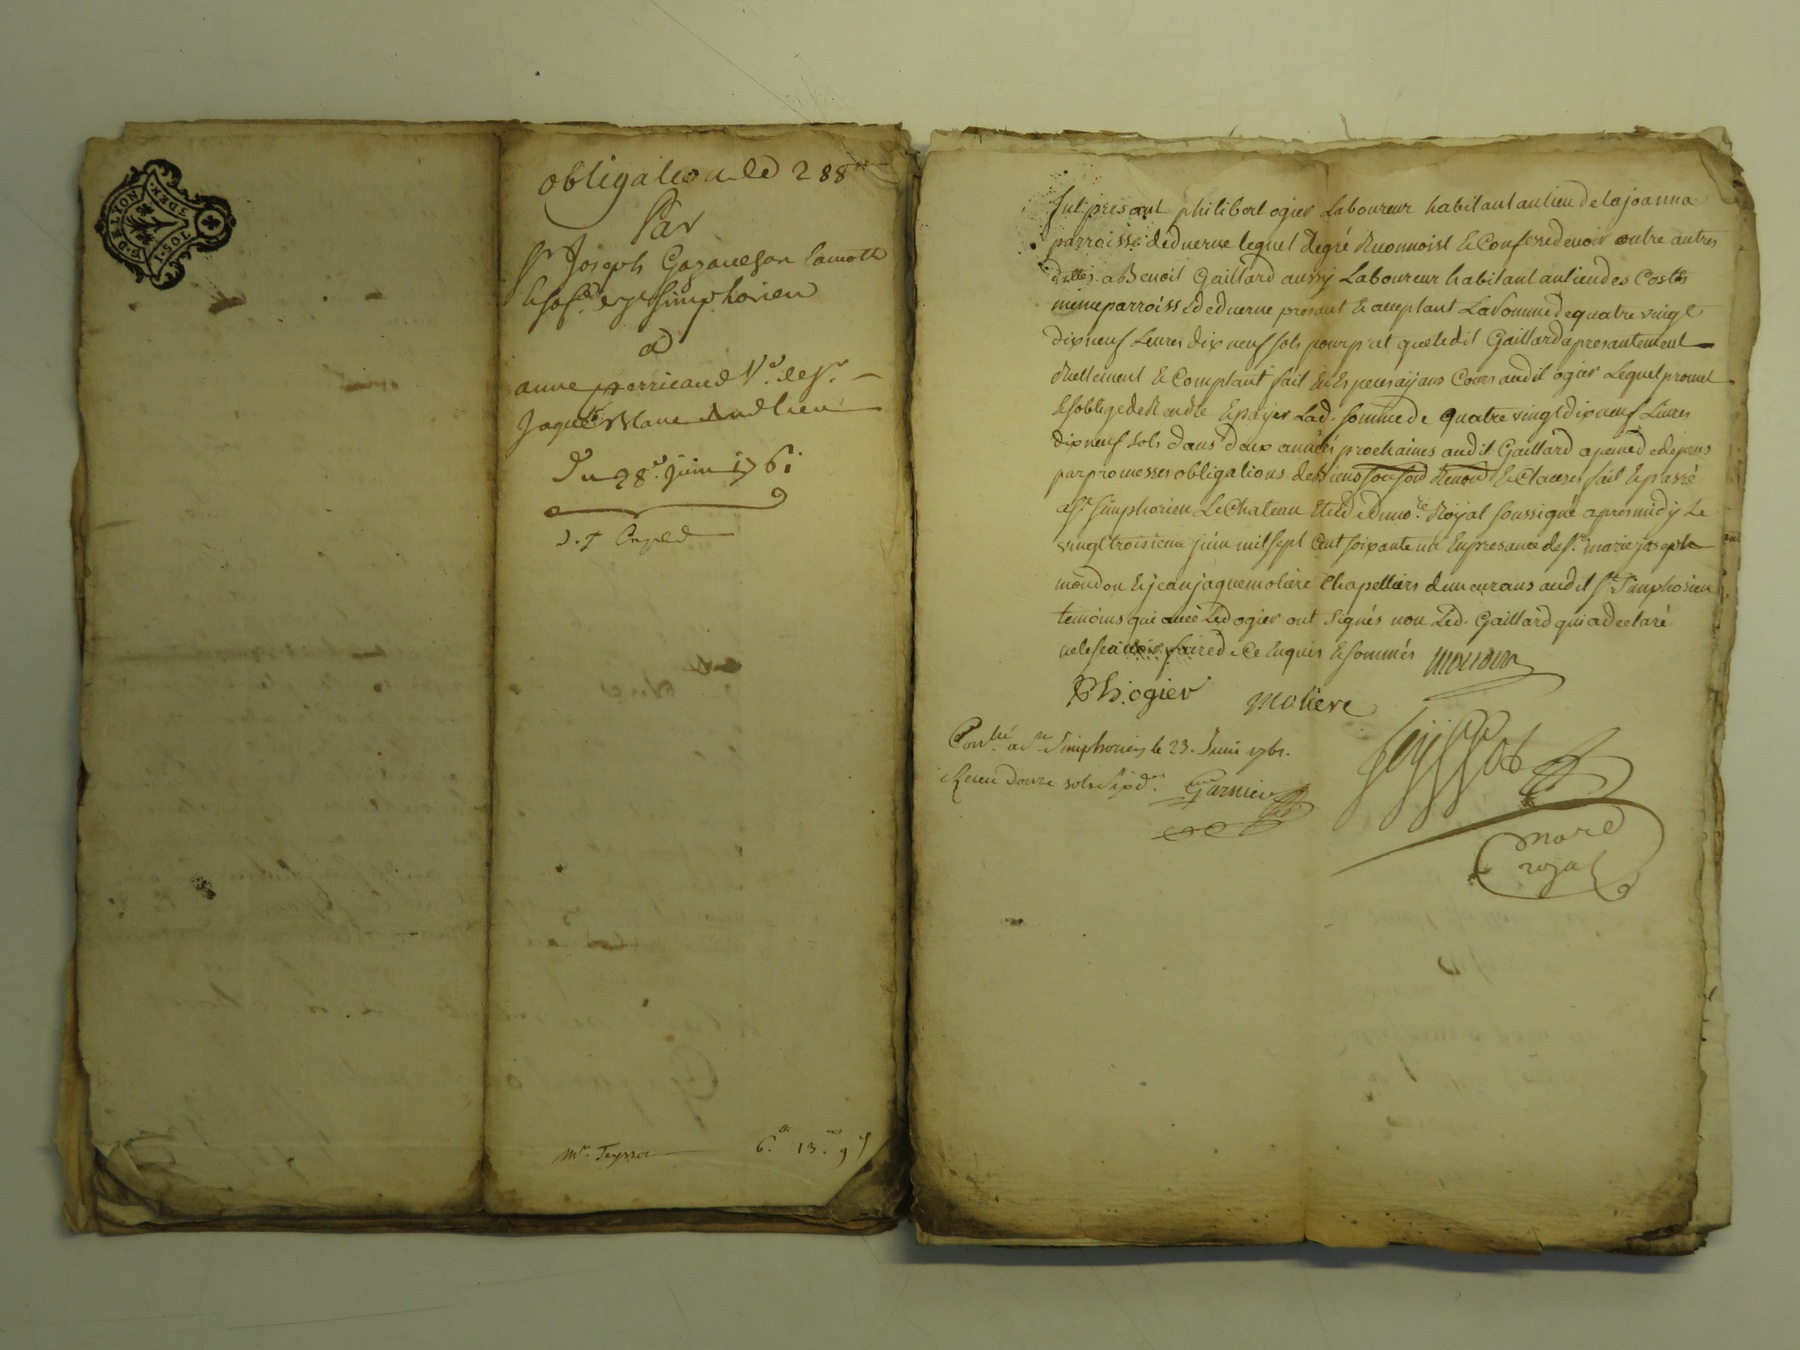 G. DE LYON
1. SOL. 5 DEN.
obligation de 288ᵗᵗ
Par
Sʳ Joseph
de Sᵗ Simphorien
a
anne perricaud Vᵉ de Sʳ
Jaque
Du 28ᵉ juin 1761
Mʳ Teyssot 6.ᵗᵗ 13.ˢ 9ᵈ
fut presant philibert ogier Laboureur habitant au lieu de la joanna
parroisse de duerne lequel de gré Reconnoist & Confesse devoir outre autres
dettes a Benoit Gaillard aussy Laboureur habitant au lieu des Costes
même parroisse de duerne presant & aceptant La Somme de quatre vingt
dix neuf Livres dix neuf sols pour prêt que ledit Gaillard a presantement
Réellement & Comptant fait En Especes ayans Cours audit ogier Lequel promet
& soblige de Rendre & payer Lad. somme de quatre vingt dix neuf Livres
dix neuf sols dans deux années prochaines audit Gaillard a peine de depens
par promesses obligations de biens & Clauses fait & passé
a Sᵗ Simphorien Le Chateau Etude du noʳᵉ Royal soussigné apres midy Le
vingt troisieme juin mil sept Cent soixante un En presance de sʳ marie joseph
moudon & jean jaque moliere Chapelliers demeurans audit Sᵗ Simphorien
temoins qui avec Led ogier ont signés non Led. Gaillard qui a declaré
ne le scavoir faire de Ce Enquis & sommés moudon
Ph: ogier Moliere
Conˡˡᵉ a Sᵗ Simphorien le 23. Juin 1761.
Receu douze sols six dʳˢ. Garnier
Teyssot
noʳᵉ
royal